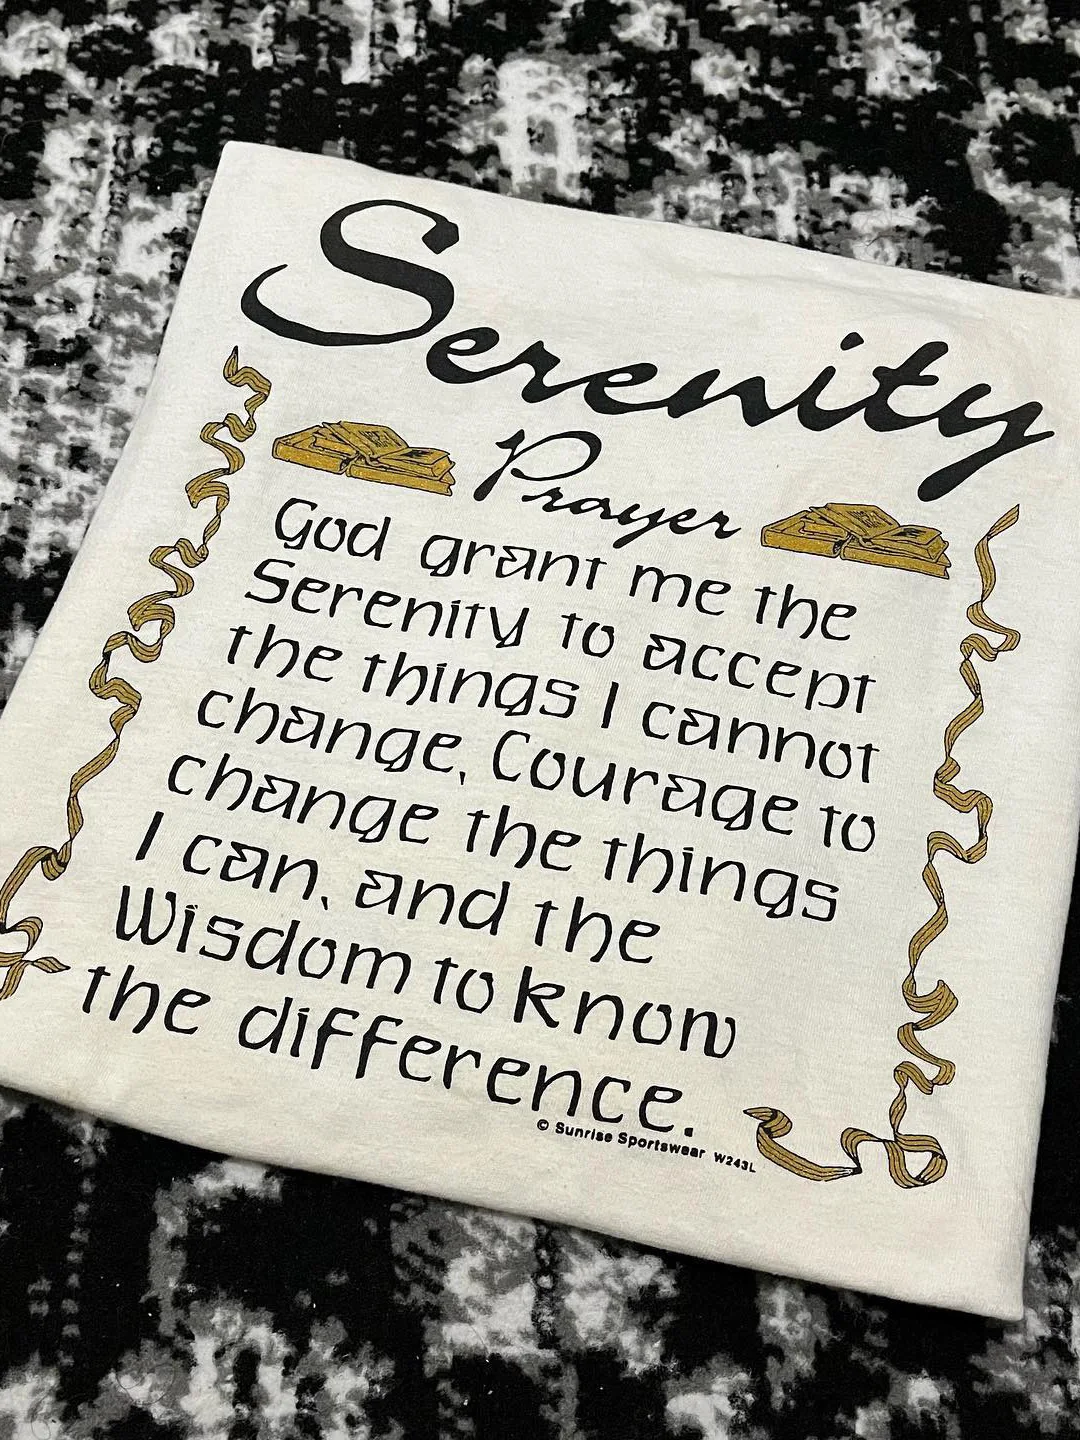 Serenity
Prayer
God grant me the
Serenity to accept
the things I cannot
change, Courage to
change the things
I can, and the
Wisdom to know
the difference.
© Sunrise Sportswear W243L